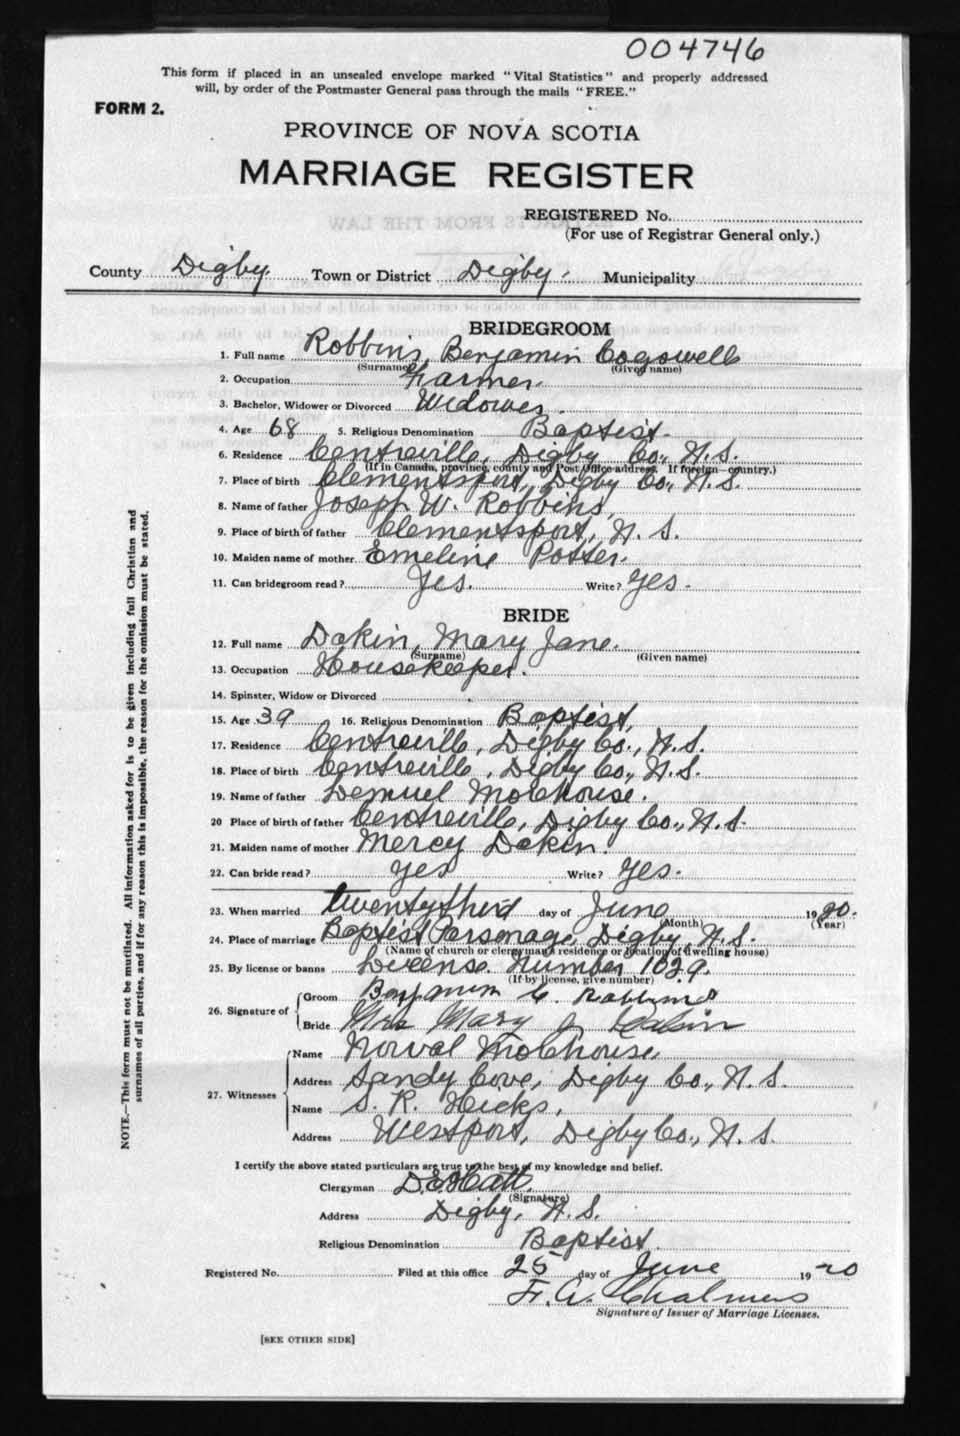 004746
This form if placed in an unsealed envelope marked "Vital Statistics" and properly addressed
will, by order of the Postmaster General pass through the mails "FREE."
FORM 2.
PROVINCE OF NOVA SCOTIA
MARRIAGE REGISTER
REGISTERED No.
(For use of Registrar General only.)
County Digby Town or District Digby. Municipality
BRIDEGROOM
1. Full name Robbins, Benjamin Cogswell
(Surname) (Given name)
2. Occupation Farmer.
3. Bachelor, Widower or Divorced Widower.
4. Age 68 5. Religious Denomination Baptist.
6. Residence Centreville, Digby Co., N.S.
(If in Canada, province, county and Post Office address. If foreign—country.)
7. Place of birth Clementsport, Digby Co., N.S.
8. Name of father Joseph W. Robbins,
9. Place of birth of father Clementsport, N.S.
10. Maiden name of mother Emeline Potter.
11. Can bridegroom read? Yes. Write? Yes.
BRIDE
12. Full name Dakin, Mary Jane.
(Surname) (Given name)
13. Occupation Housekeeper.
14. Spinster, Widow or Divorced
15. Age 39 16. Religious Denomination Baptist,
17. Residence Centreville, Digby Co., N.S.
18. Place of birth Centreville, Digby Co., N.S.
19. Name of father Lemuel Morehouse.
20 Place of birth of father Centreville, Digby Co., N.S.
21. Maiden name of mother Mercy Dakin.
22. Can bride read? Yes Write? Yes.
23. When married twenty third day of June 1920.
(Month) (Year)
24. Place of marriage Baptist Parsonage, Digby, N.S.
(Name of church or clergyman's residence or location of dwelling house)
25. By license or banns License. Number 1029.
(If by license, give number)
26. Signature of Groom Benjamin C. Robbins
Bride Mrs Mary J Dakin
27. Witnesses Name Norval Morehouse,
Address Sandy Cove, Digby Co., N.S.
Name S. R. Hicks,
Address Westport, Digby Co., N.S.
I certify the above stated particulars are true to the best of my knowledge and belief.
Clergyman D.E. Hatt.
(Signature)
Address Digby, N.S.
Religious Denomination Baptist.
Registered No. Filed at this office 25 day of June 1920
F. A. Chalmers
Signature of Issuer of Marriage Licenses.
[SEE OTHER SIDE]
NOTE.—This form must not be mutilated. All information asked for is to be given including full Christian and
surnames of all parties, and if for any reason this is impossible, the reason for the omission must be stated.